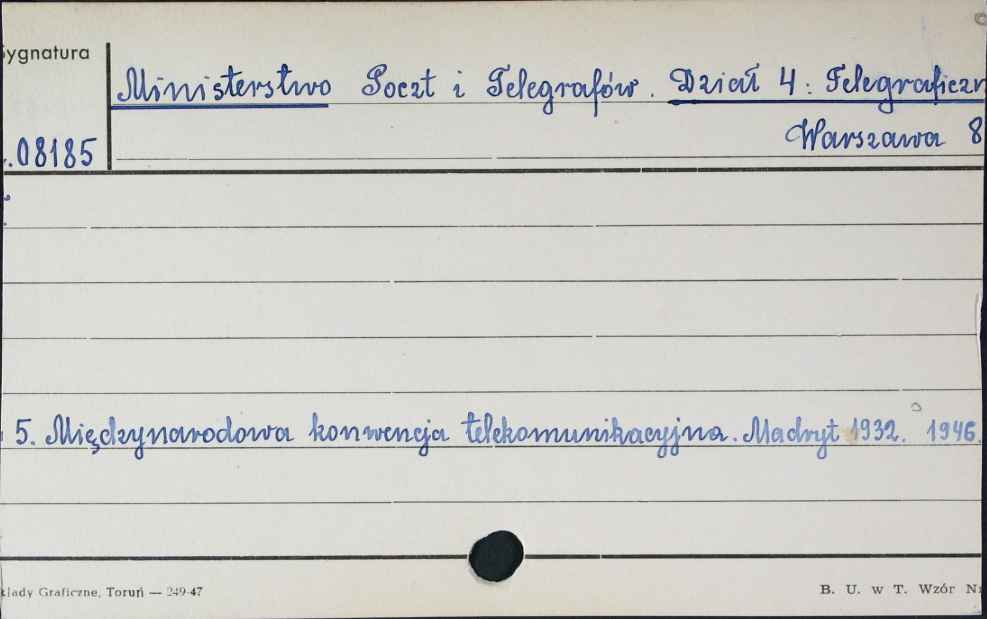 ygnatura
Ministerstwo Poczt i Telegrafów. Dział 4: Telegraficzn
Warszawa 8
.08185
5. Międzynarodowa konwencja telekomunikacyjna. Madryt 1932. 1946.
kłady Graficzne, Toruń — 249-47
B. U. w T. Wzór Nr